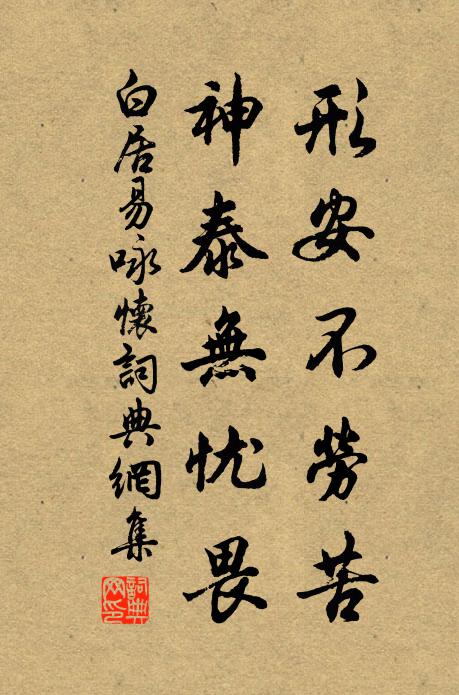 形安不勞苦
神泰無忧畏
白居易咏懷詞典網集
詞典網印